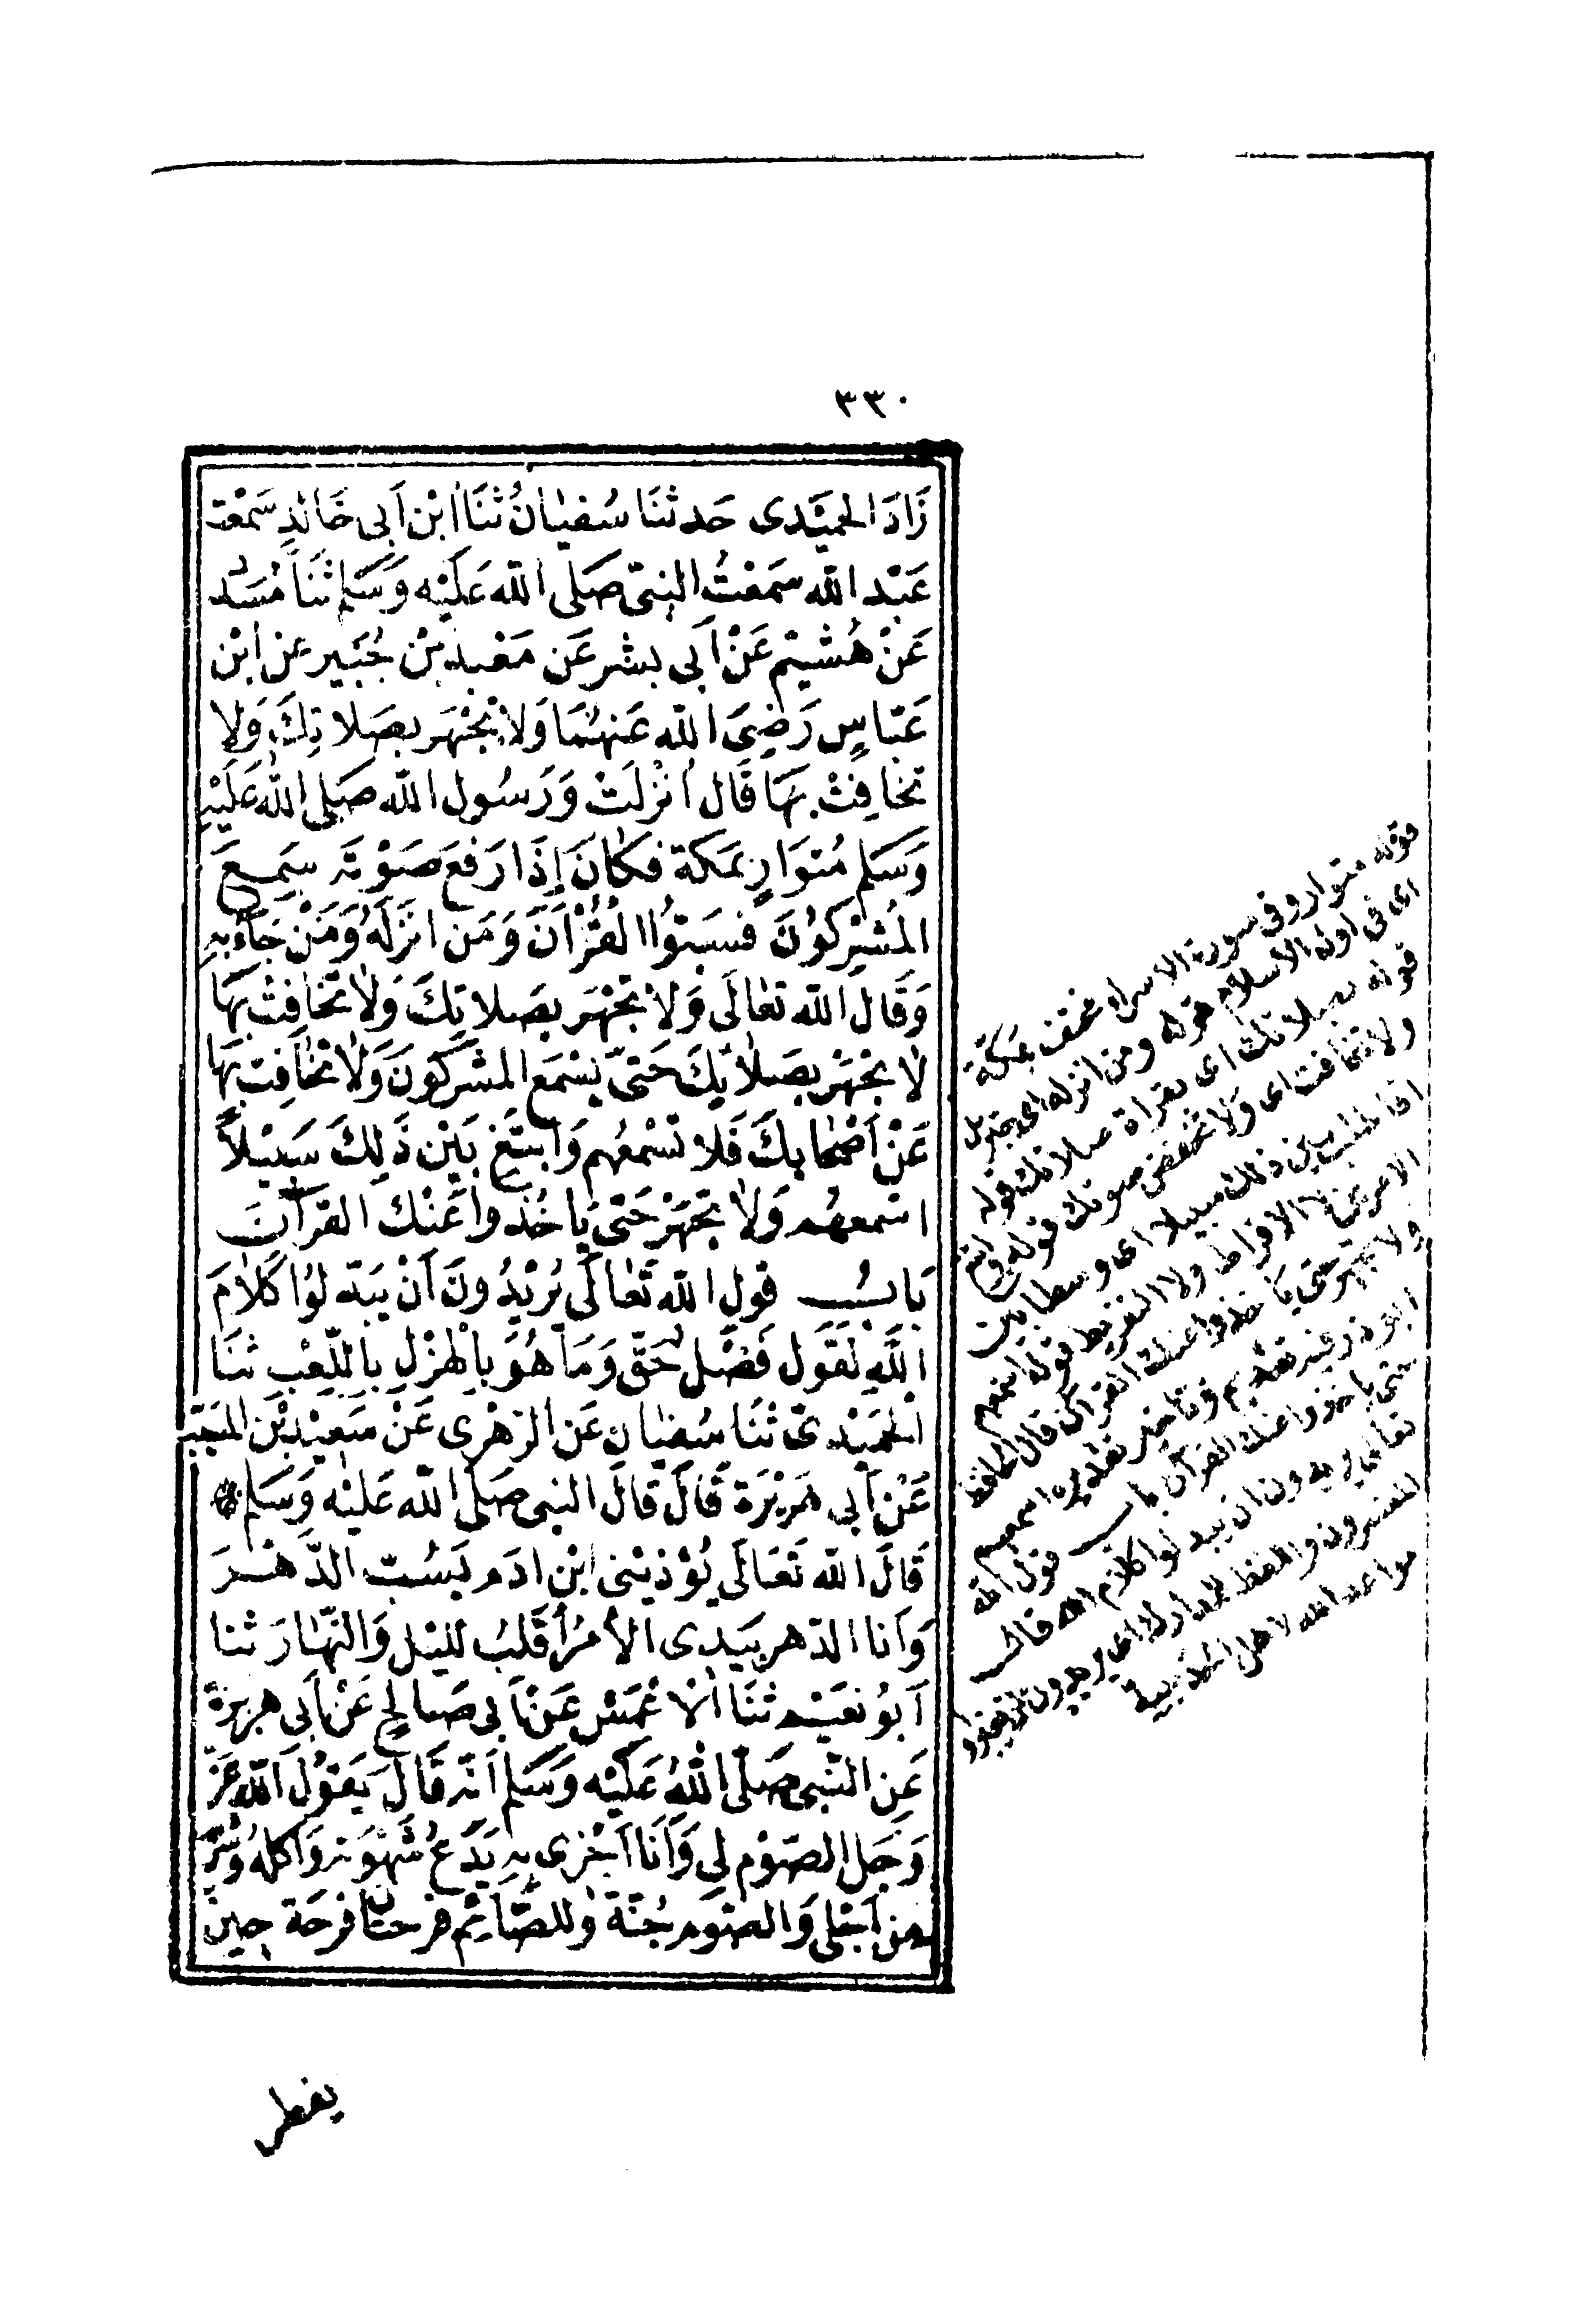 ٣٣٠
زَادَ الحُمَيْدى حَدثنَا سُفيٰانُ ثنَا ابْن اَبى خَالدٍ سَمعْت
عَبْد الله سمَعْتُ النبىّ صَلى الله عَليْه وَسَلم ثنَا مُسَدد
عَنْ هُشَيْم عَنْ اَبى بشر عَن سَعْيد بنْ جُبَير عن ابْن
عَبّاسٍ رَضِىَ الله عَنهُمَا وَلاٰ تجْهَر بصَلا تِكَ وَلا
تخافِتْ بهَا قَال اُنْزلَتْ وَرَسُول الله صَلى الله عَليْهِ
وَسَلم مُتوَارٍ بمَكة فكٰانَ إِذَا رَفعَ صَوْتهَ سَمِعَ
المُشرِكوُنَ فسَبّوُا القُرْاٰنَ وَمَن انزَلَهُ وَمَنْ جَاءَ بهِ
وَقَالَ الله تعٰالَى وَلاٰ تجْهَر بصَلا تِكَ وَلاٰ تخٰافِتْ بهَا
لاٰ تجْهَرْ بصَلاٰتِكَ حَتىّ يَسْمَع المشركونَ وَلاٰ تخٰافِت بهَا
عَنْ اَصْحَابكَ فَلا تسْمعُهم وَابتَغِ بَيْن ذَلِكَ سَبيْلاً
اسْمعهُم وَلاٰ تجهَرْ حَتىّ يَاخُذوا عَنْك القرآنَ
بَابُ قول الله تعَٰالَى يُرْيدُونَ اَنْ يبَدّلوُا كلاٰمَ
اللّه لقَوَل فَصْل حَقّ وَمَا هُوَ بِالهزْلِ بِاللّعِبِ ثنَا
الحُمَيْدىّ ثنَا سُفيٰان عَن الزهْرى عَنْ سَعِيْد بْن المسَيّب
عَنْ اَبى هُرَيْرَة قَالَ قالَ النبى صَلى الله عَليْه وَسَلم
قَالَ الله تَعَالَى يُؤْذيْنى ابْن ادَم يَسُبّ الدّهْرَ
وَاَنا الدّهر بيَدى الأمرُ اُقَلبُ الليْل وَالنّهٰارَ ثنا
اَبوُ نعَيْم ثنَا الاٰعْمَش عَنْ اَبى صَالح عَنْ اَبى هريرةَ
عَن النّبى صَلّى اللهُ عَليْه وَسَلم اَنّه قَالَ يَقوُل الله عَزّ
وَجَل الصّوْم لى وَاَنَا اَجْزى بهِ يَدَعُ شهْوَته وَاكلهُ وَشُرْبَهُ
من اَجْلى وَالصّوم جُنّة وَللصَّائِم فرحتان فرحَة حِين
يفطر
قوله متوار وفى سورة الاسراء مختف بمكة
اى فى اول الاسلام قوله ومن انزله اى جبريل
قوله بصلاتك اى بقراة صلاتك قوله
ولا تخافت اى ولا تخفض صوتك قوله وابتغ
اى اطلب بين ذلك سبيلا اى وسطا بين
الامرين لا الافراط ولا التفريط قوله اسمعهم
ولا تجهر حتى ياخذوا عنك القرآن قال الحافظ
ابو ذر فيه تقديم وتاخير تقديره اسمعهم
حتى ياخذوا عنك القرآن باب قول الله
تعالى يريدون ان يبدلوا كلام الله قال
المفسرون واللفظ للمدارك اى يريدون ان يغيروا
مواعد الله لاهل الحديبية